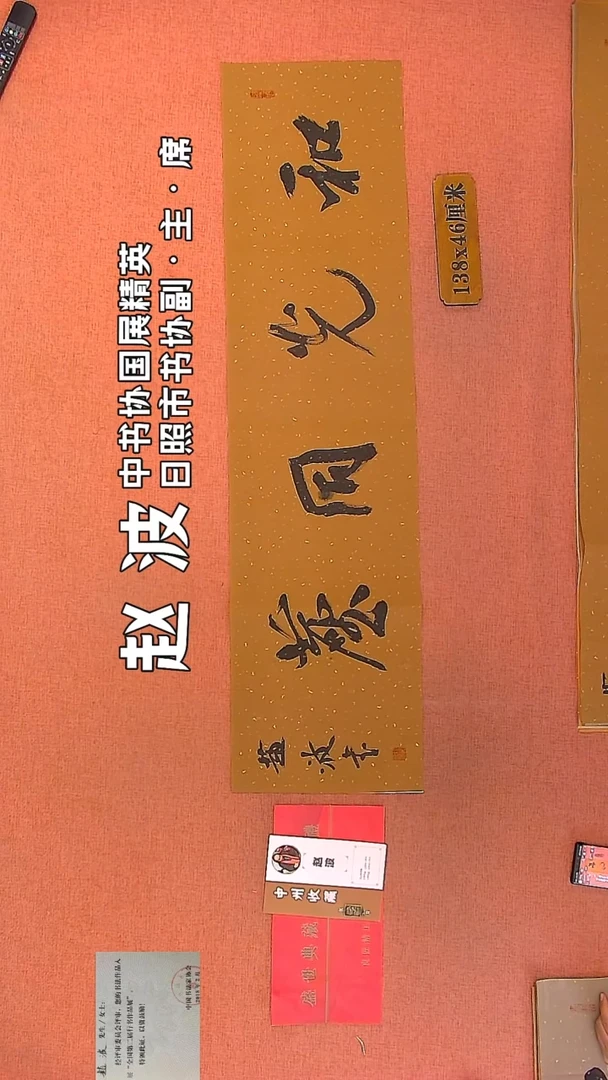 赵波
中书协国展精英
日照市书协副·主·席
和光同塵
趙波書
138x46厘米
赵波
中州收藏
盛世典藏
赵波 先生/女士：
经评审委员会评审，您的书法作品入
展“全国第二届行书作品展”，
特颁此证，以资鼓励！
中国书法家协会